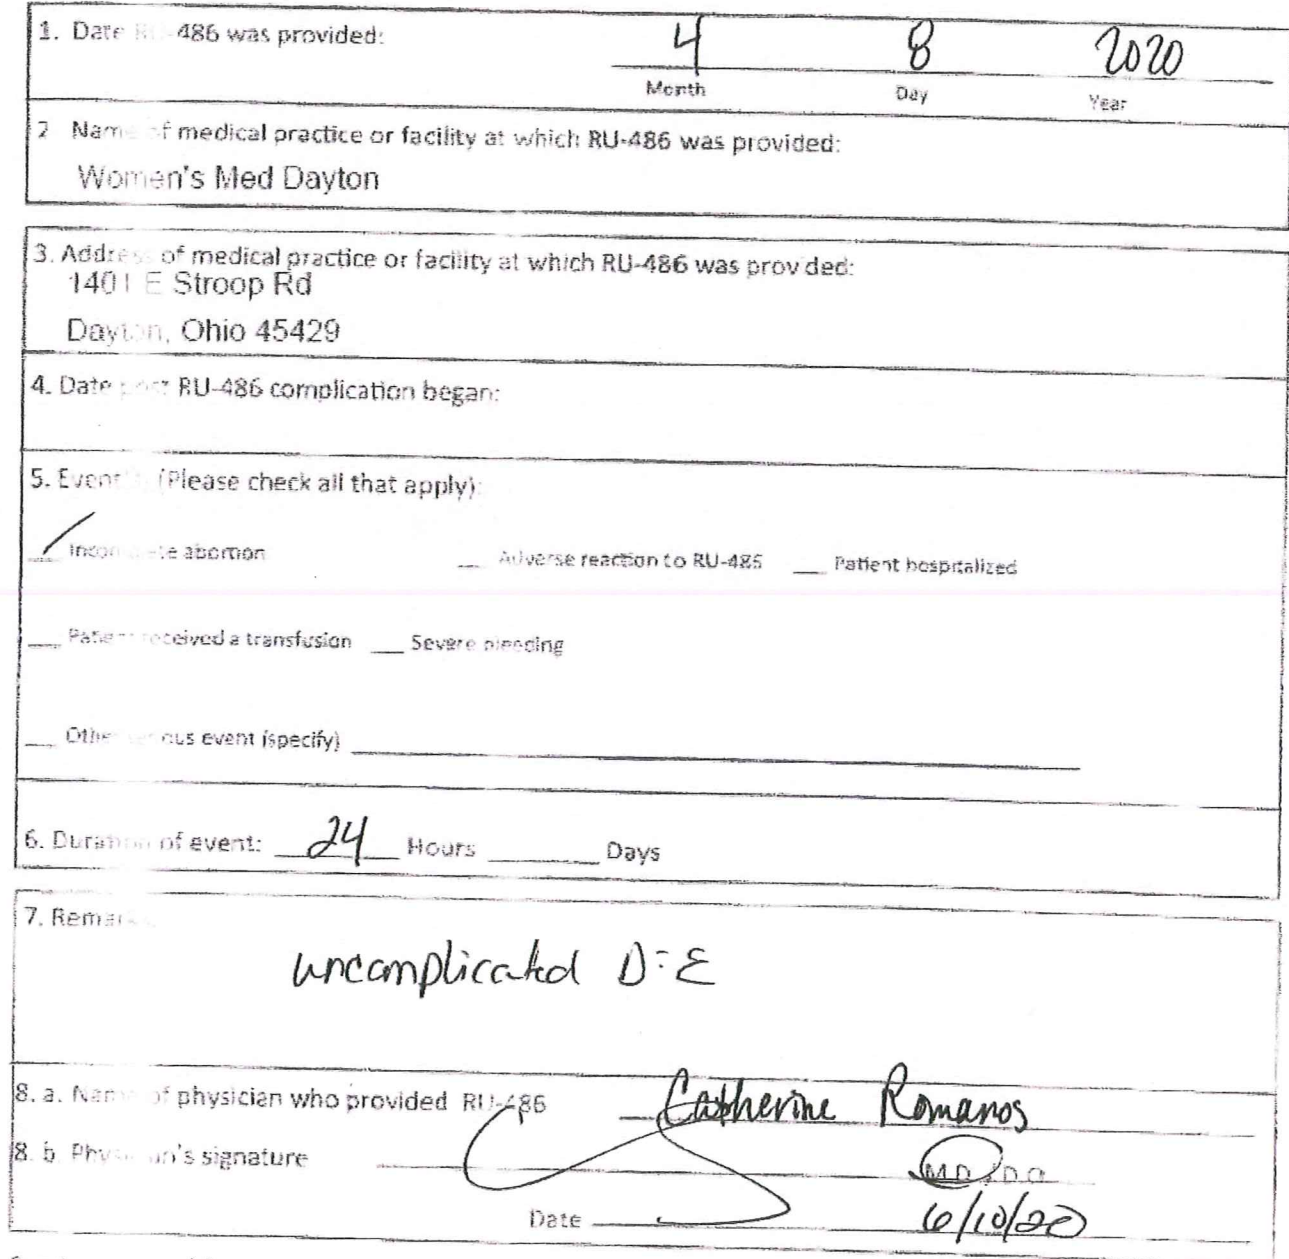 1. Date RU-486 was provided: 4 8 2020
Month Day Year
2 Name of medical practice or facility at which RU-486 was provided:
Women's Med Dayton
3. Address of medical practice or facility at which RU-486 was provided:
1401 E Stroop Rd
Dayton, Ohio 45429
4. Date post RU-486 complication began:
5. Event (Please check all that apply):
Incomplete abortion Adverse reaction to RU-486 Patient hospitalized
Patient received a transfusion Severe bleeding
Other serious event (specify)
6. Duration of event: 24 Hours Days
7. Remarks
uncomplicated D:E
8. a. Name of physician who provided RU-486 Catherine Romanos
8. b. Physician's signature MD/DO
Date 6/10/20